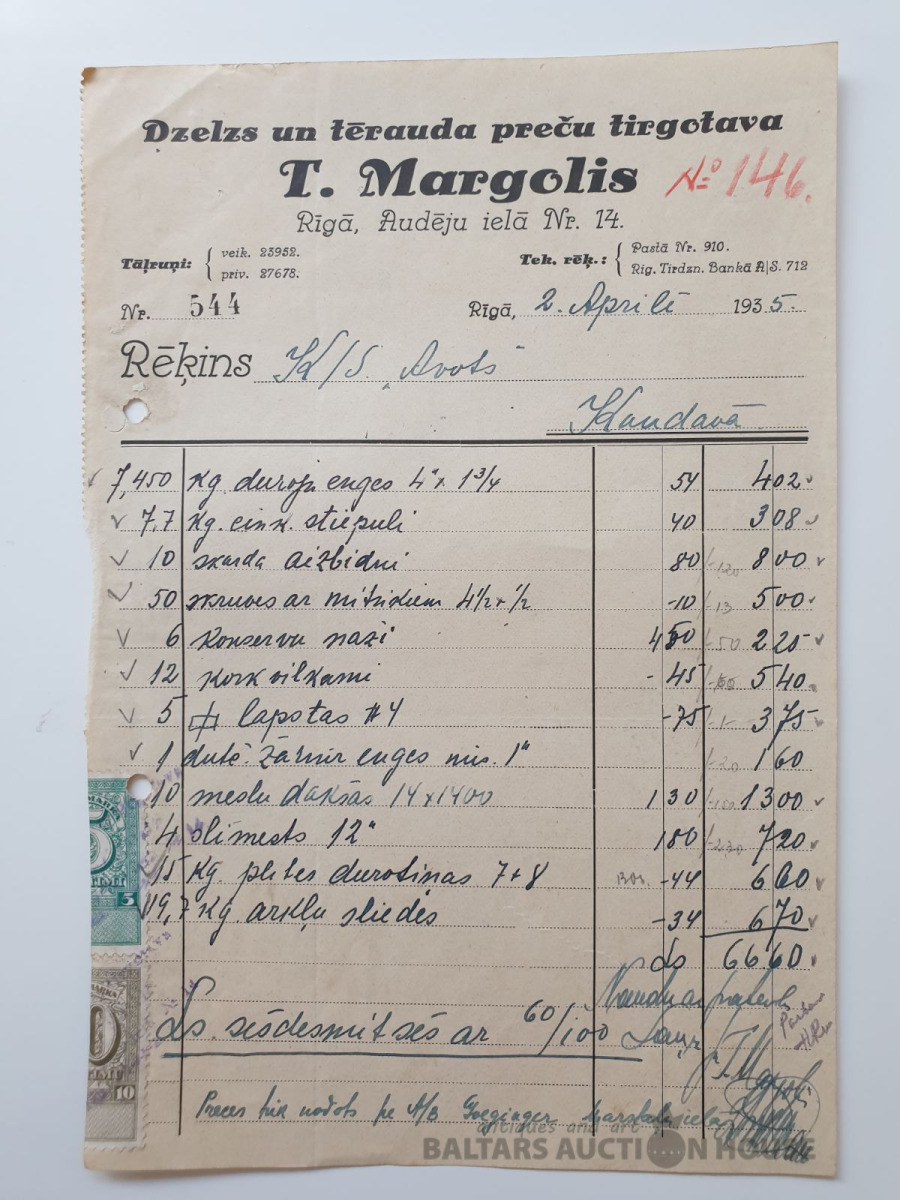 Dzelzs un tērauda preču tirgotava
T. Margolis
№ 146.
Rīgā, Audēju ielā Nr. 14.
Tāļruņi: { veik. 23952.
priv. 27678.
Tek. rēķ.: { Pastā Nr. 910.
Rig. Tirdzn. Bankā A|S. 712
Nr. 544
Rīgā, 2. Aprilē 1935.
Rēķins K/S. „Avots"
Kandavā
7,450 Kg. duroju enges 4" x 1 3/4 54 402
7,7 Kg. cink. stiepuli 40 308
10 skarda aizbidni 80 800
50 skruves ar mitridiem 4 1/2 x 1/2 -10 500
6 Konservu naži 450 225
12 Kork vilkami -45 540
5 lapstas #4 -75 375
1 dutē. žārnir enges 1" 160
10 meslu dakšas 14 x 1400 130 1300
4 slimests 12" 180 720
15 Kg. plites durotinas 7+8 -44 660
19,7 Kg. arkļu sliedēs -34 670
Ls 6660
Ls. sešdesmit seš ar 60/100
Preces tik nodots pe A/B Goeginger
antiques and art
BALTARS AUCTION HOUSE
5
10